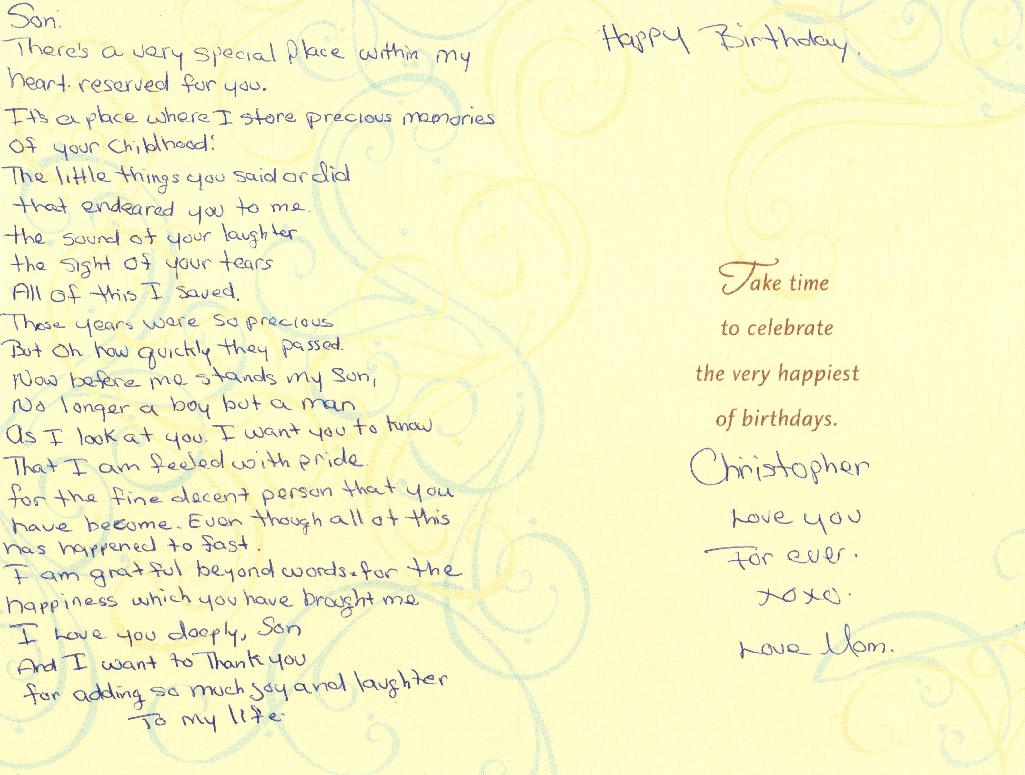 Son.
There's a very special place within my
heart. reserved for you.
It's a place where I store precious memories
of your Childhood:
The little things you said or did
that endeared you to me.
the sound of your laughter
the sight of your tears
All of this I saved.
Those years were so precious
But Oh how quickly they passed.
Now before me stands my Son,
No longer a boy but a man
As I look at you. I want you to know
That I am feeled with pride.
for the fine decent person that you
have become. Even though all of this
has happened to fast.
I am gratful beyond words. for the
happiness which you have brought me
I Love you deeply, Son
And I want to Thank you
for adding so much joy and laughter
To my life.
Happy Birthday.
Take time
to celebrate
the very happiest
of birthdays.
Christopher
Love you
For ever.
xoxo.
Love Mom.